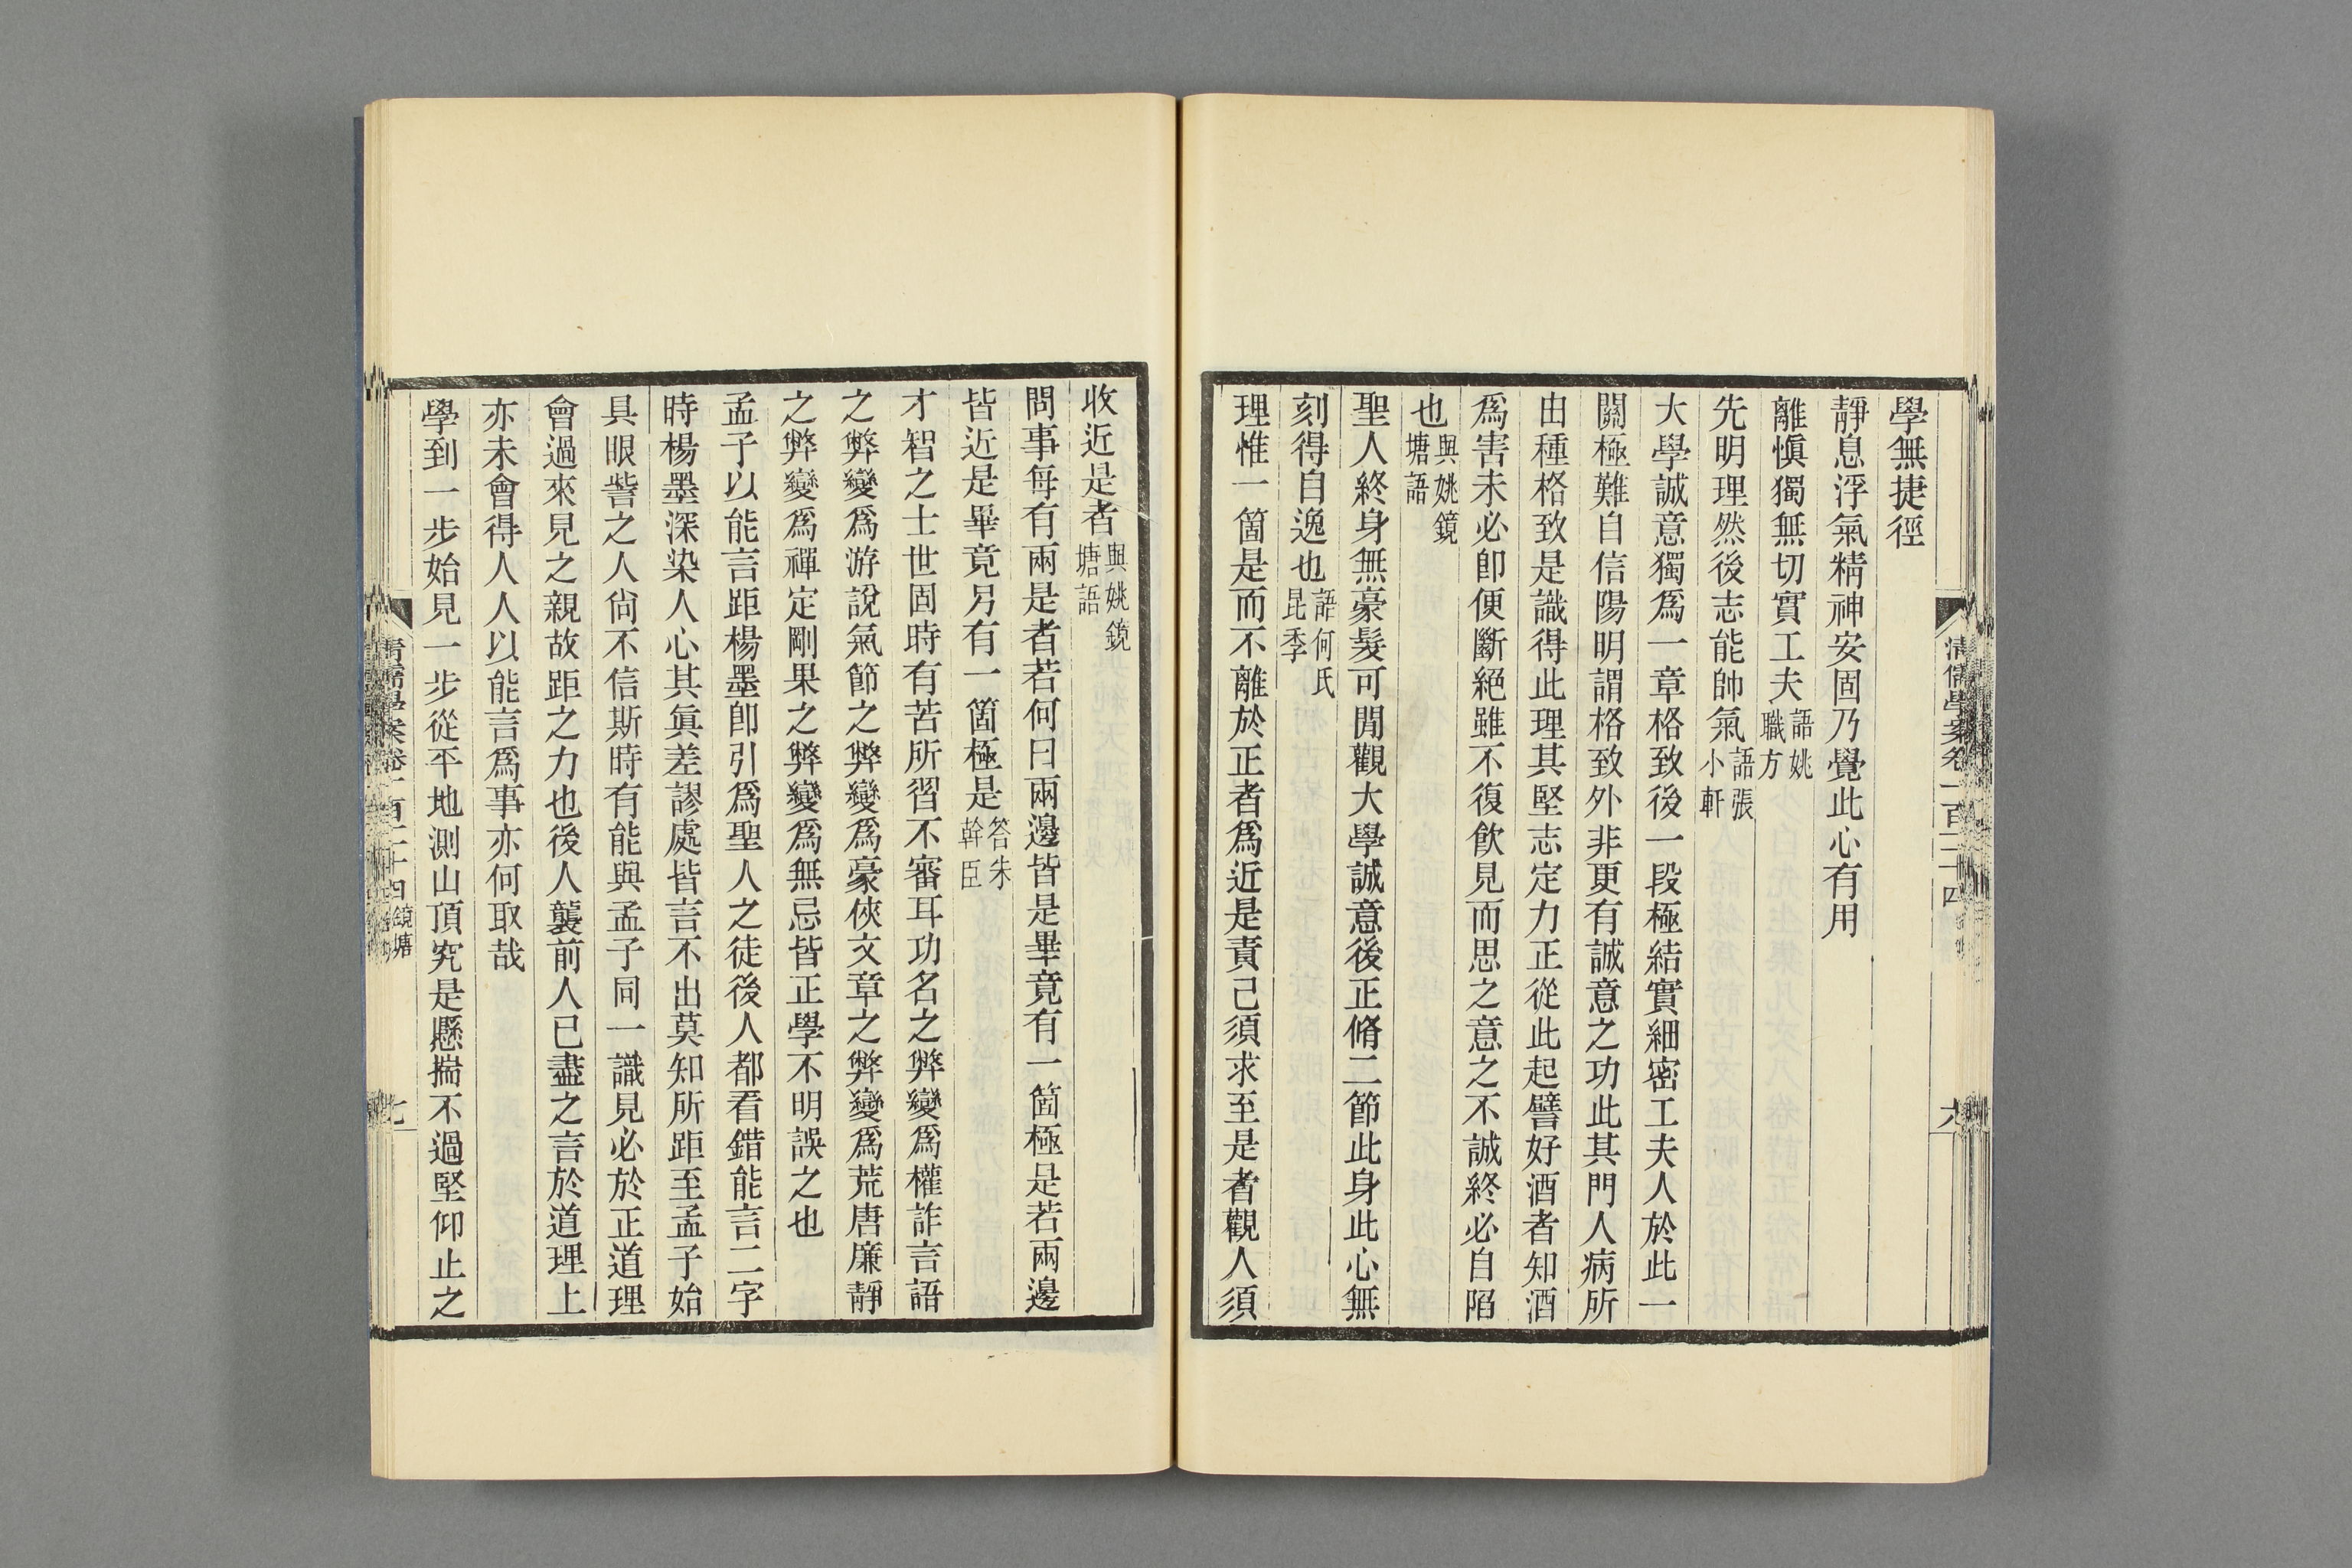 學無捷徑
靜息浮氣精神安固乃覺此心有用
離愼獨無切實工夫語姚職方
先明理然後志能帥氣語張小軒
大學誠意獨爲一章格致後一段極結實細密工夫人於此一
關極難自信陽明謂格致外非更有誠意之功此其門人病所
由種格致是識得此理其堅志定力正從此起譬好酒者知酒
爲害未必卽便斷絕雖不復飮見而思之意之不誠終必自陷
也與姚鏡塘語
聖人終身無豪髮可閒觀大學誠意後正脩二節此身此心無
刻得自逸也語何氏昆季
理惟一箇是而不離於正者爲近是責己須求至是者觀人須
清儒學案卷一百二十四
收近是者與姚鏡塘語
問事每有兩是者若何曰兩邊皆是畢竟有一箇極是若兩邊
皆近是畢竟另有一箇極是答朱幹臣
才智之士世固時有苦所習不審耳功名之弊變爲權詐言語
之弊變爲游說氣節之弊變爲豪俠文章之弊變爲荒唐廉靜
之弊變爲禪定剛果之弊變爲無忌皆正學不明誤之也
孟子以能言距楊墨卽引爲聖人之徒後人都看錯能言二字
時楊墨深染人心其眞差謬處皆言不出莫知所距至孟子始
具眼訾之人尙不信斯時有能與孟子同一識見必於正道理
會過來見之親故距之力也後人襲前人已盡之言於道理上
亦未會得人人以能言爲事亦何取哉
學到一步始見一步從平地測山頂究是懸揣不過堅仰止之
清儒學案卷一百二十四 鏡塘
七